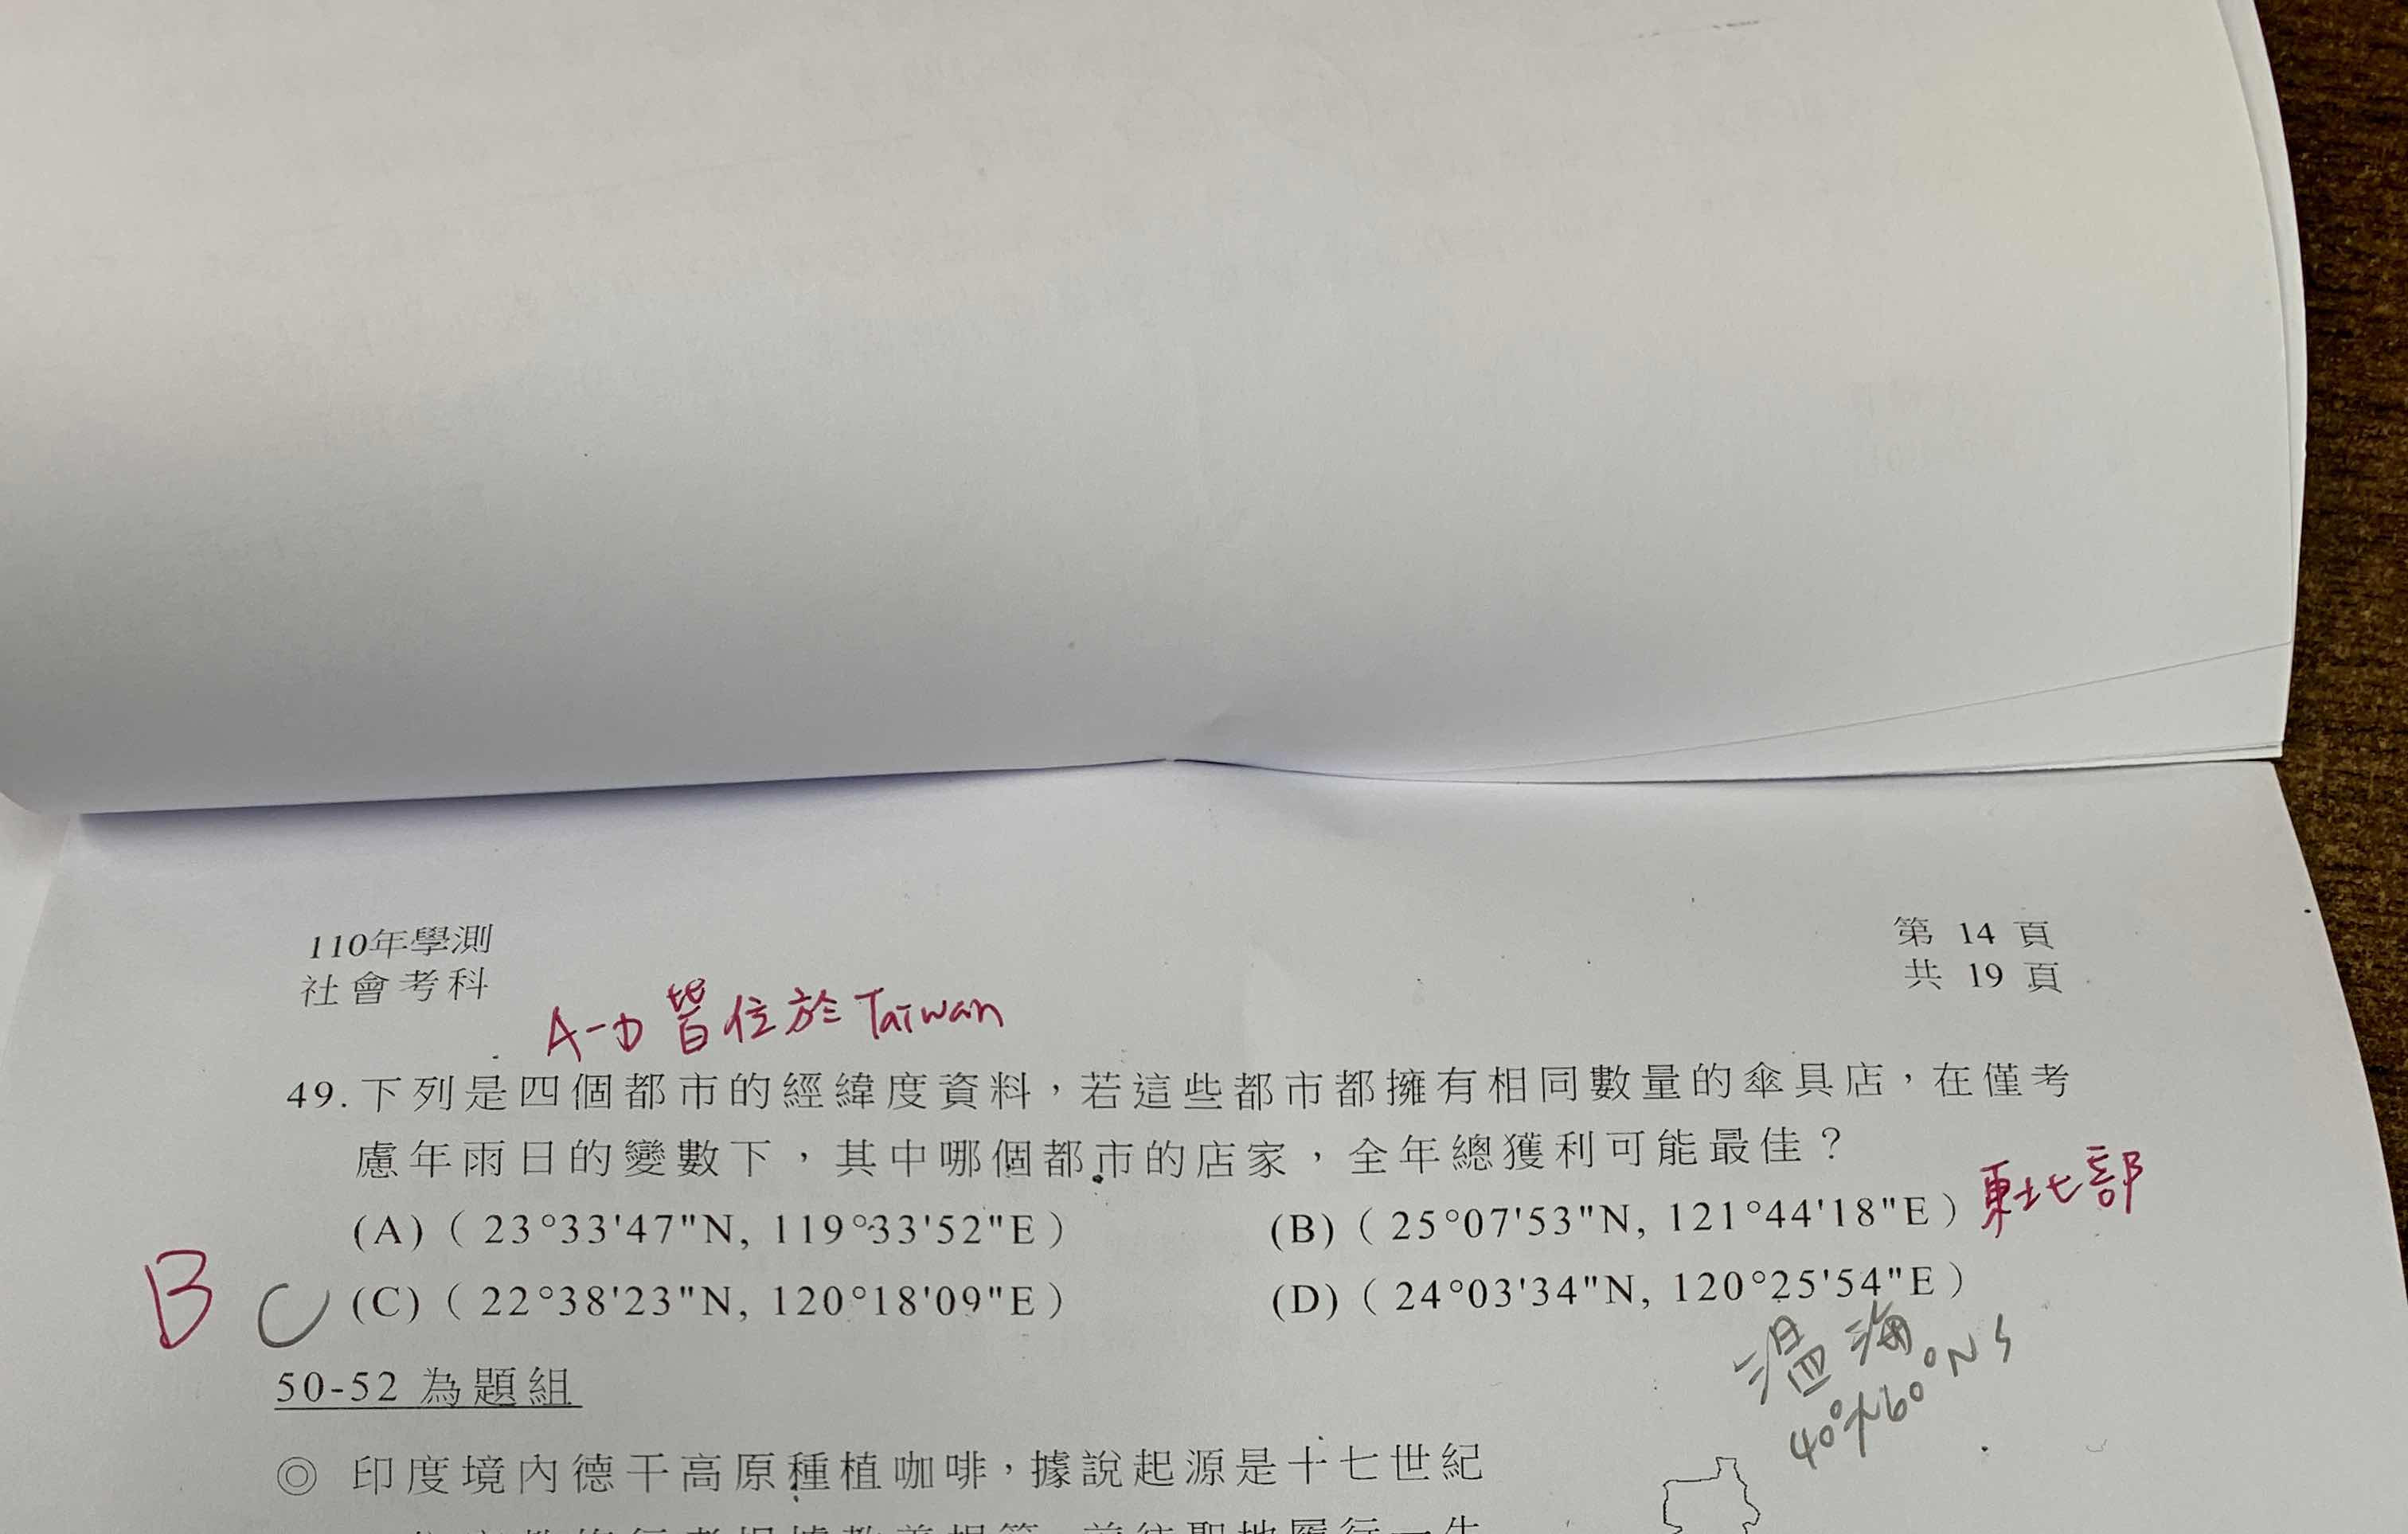 110年學測
社會考科
第 14 頁
共 19 頁
A-D 皆位於 Taiwan
49.下列是四個都市的經緯度資料，若這些都市都擁有相同數量的傘具店，在僅考
慮年雨日的變數下，其中哪個都市的店家，全年總獲利可能最佳？
(A)（23°33'47"N, 119°33'52"E）
(B)（25°07'53"N, 121°44'18"E）東北部
B C
(C)（22°38'23"N, 120°18'09"E）
(D)（24°03'34"N, 120°25'54"E）
溫海
40°~60°NS
50-52 為題組
◎ 印度境內德干高原種植咖啡，據說起源是十七世紀